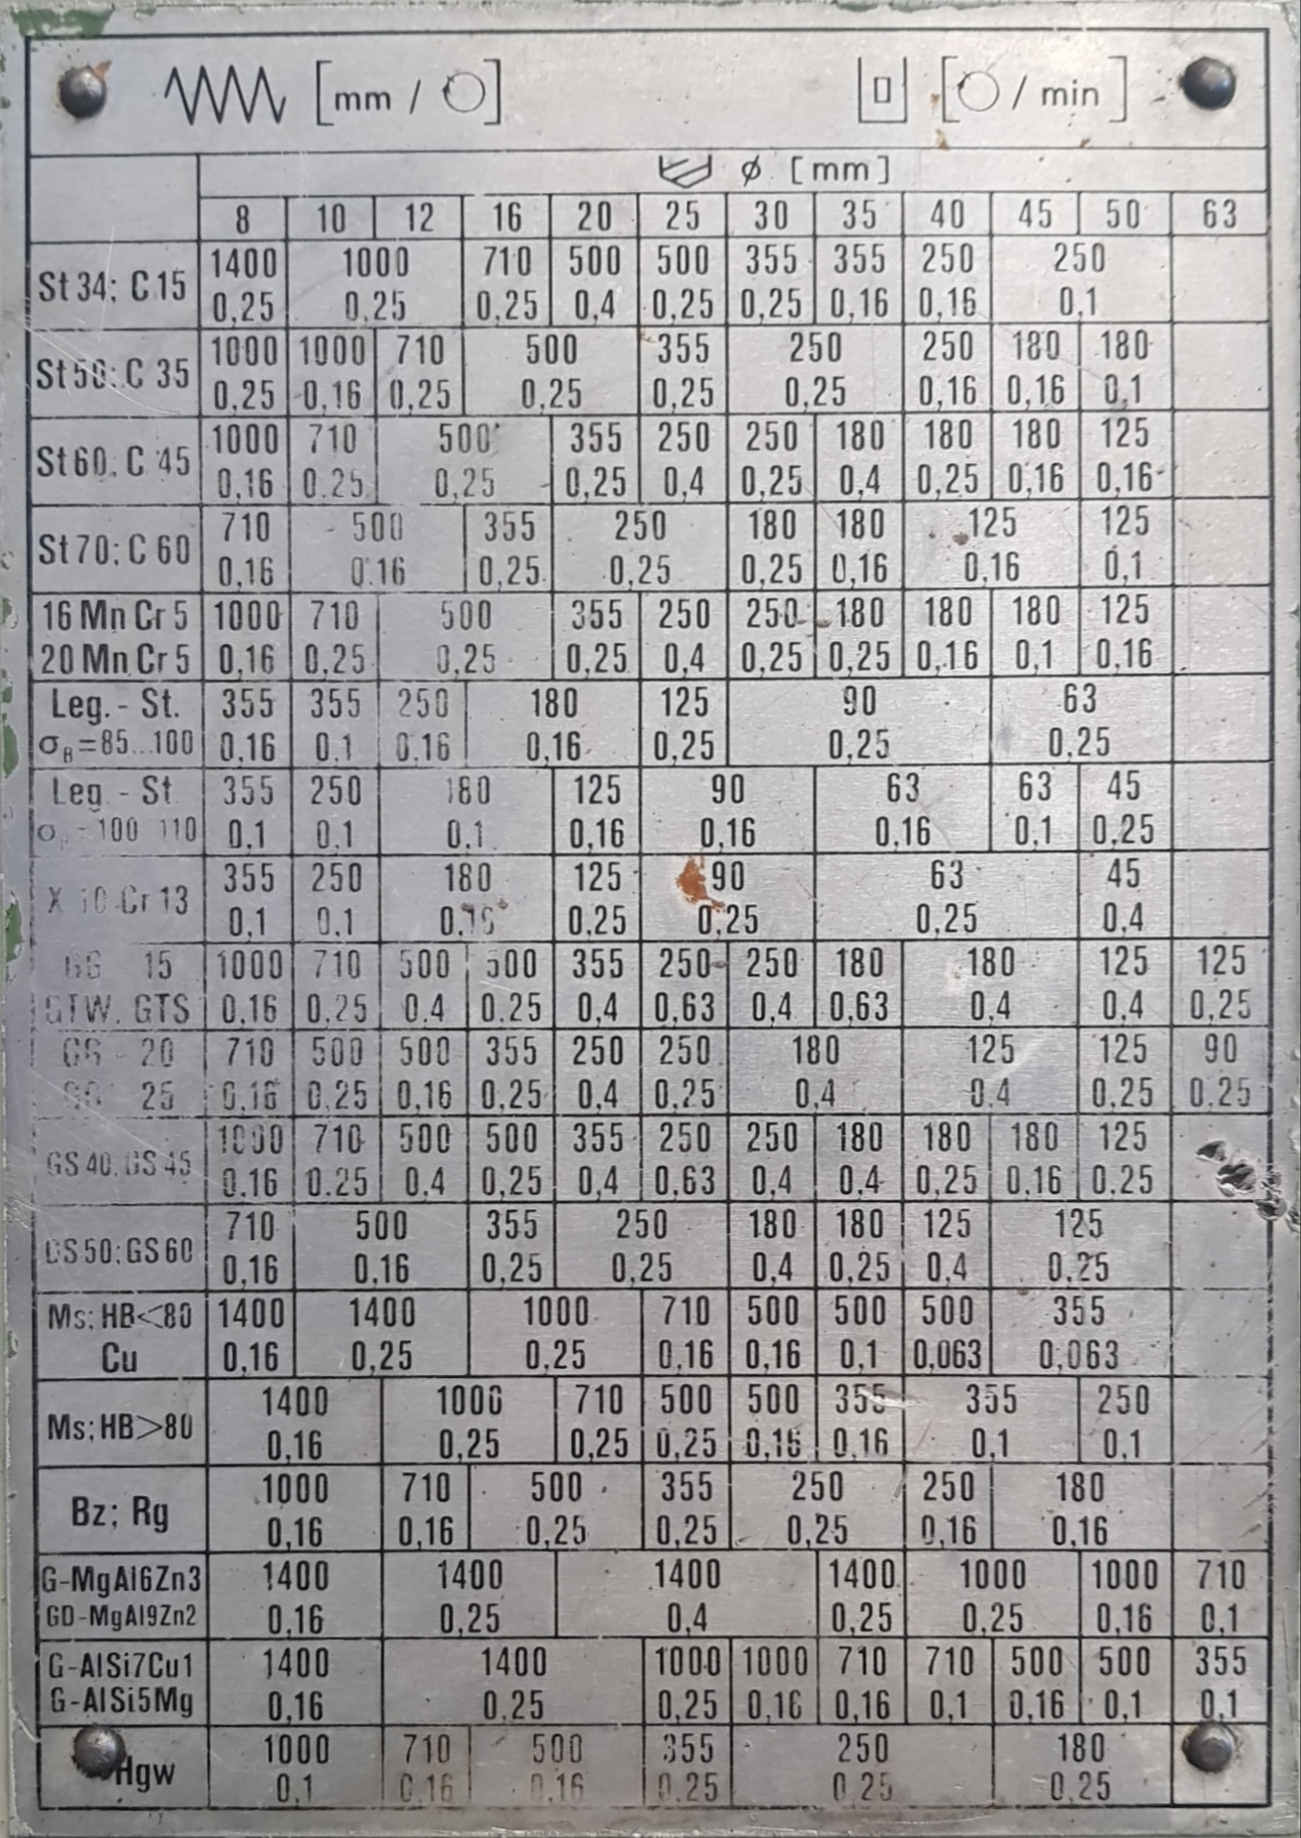 [mm / ] [ / min]
ϕ [mm]
8 10 12 16 20 25 30 35 40 45 50 63
St 34; C 15 1400 1000 710 500 500 355 355 250 250
0,25 0,25 0,25 0,4 0,25 0,25 0,16 0,16 0,1
St 50; C 35 1000 1000 710 500 355 250 250 180 180
0,25 0,16 0,25 0,25 0,25 0,25 0,16 0,16 0,1
St 60. C 45 1000 710 500 355 250 250 180 180 180 125
0,16 0.25 0,25 0,25 0,4 0,25 0,4 0,25 0,16 0,16
St 70; C 60 710 500 355 250 180 180 125 125
0,16 0.16 0,25 0,25 0,25 0,16 0,16 0,1
16 Mn Cr 5 1000 710 500 355 250 250 180 180 180 125
20 Mn Cr 5 0,16 0,25 0,25 0,25 0,4 0,25 0,25 0,16 0,1 0,16
Leg. - St. 355 355 250 180 125 90 63
σB=85...100 0,16 0.1 0,16 0,16 0,25 0,25 0,25
Leg. - St 355 250 180 125 90 63 63 45
100 110 0.1 0.1 0.1 0,16 0,16 0,16 0,1 0,25
X 10 Cr 13 355 250 180 125 90 63 45
0,1 0,1 0,25 0,25 0,25 0,4
GG 15 1000 710 500 500 355 250 250 180 180 125 125
GTW. GTS 0,16 0.25 0.4 0.25 0,4 0,63 0,4 0,63 0,4 0,4 0,25
GG - 20 710 500 500 355 250 250 180 125 125 90
25 0.16 0.25 0,16 0,25 0,4 0,25 0,4 0.4 0,25 0.25
GS 40. GS 45 1000 710 500 500 355 250 250 180 180 180 125
0.16 0.25 0,4 0,25 0,4 0,63 0,4 0,4 0,25 0,16 0.25
GS 50; GS 60 710 500 355 250 180 180 125 125
0,16 0,16 0,25 0,25 0,4 0,25 0,4 0,25
Ms; HB<80 1400 1400 1000 710 500 500 500 355
Cu 0,16 0,25 0,25 0,16 0,16 0,1 0,063 0,063
Ms; HB>80 1400 1000 710 500 500 355 355 250
0,16 0,25 0,25 0,25 0,16 0,16 0,1 0,1
Bz; Rg 1000 710 500 355 250 250 180
0,16 0,16 0,25 0,25 0,25 0,16 0,16
G-MgAl6Zn3 1400 1400 1400 1400 1000 1000 710
GD-MgAl9Zn2 0,16 0,25 0,4 0,25 0,25 0,16 0,1
G-AlSi7Cu1 1400 1400 1000 1000 710 710 500 500 355
G-AlSi5Mg 0,16 0,25 0,25 0,16 0,16 0,1 0,16 0,1 0,1
Hgw 1000 710 500 355 250 180
0,1 0,16 0,16 0.25 0.25 0,25